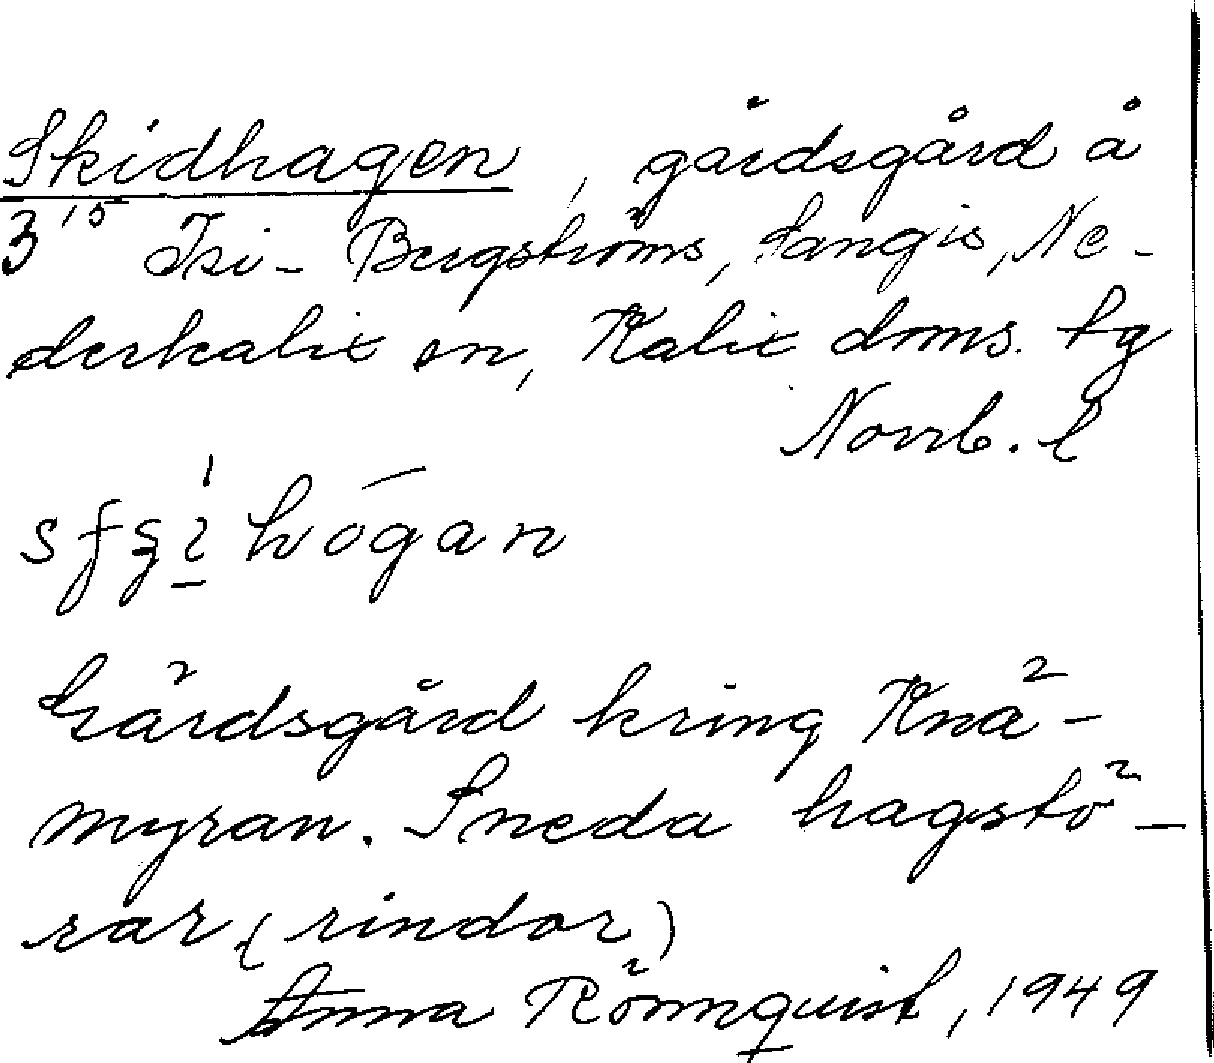 Skidhagen, gärdsgård å
3¹⁵ Isi-Bergströms, Sangis, Ne-
derkalix sn, Kalix doms. tg
Norrb. l
hǫ́gan
Gärdsgård kring Knä-
myran. Sneda hagstö-
rar (rindor)
Anna Rönnquist, 1949